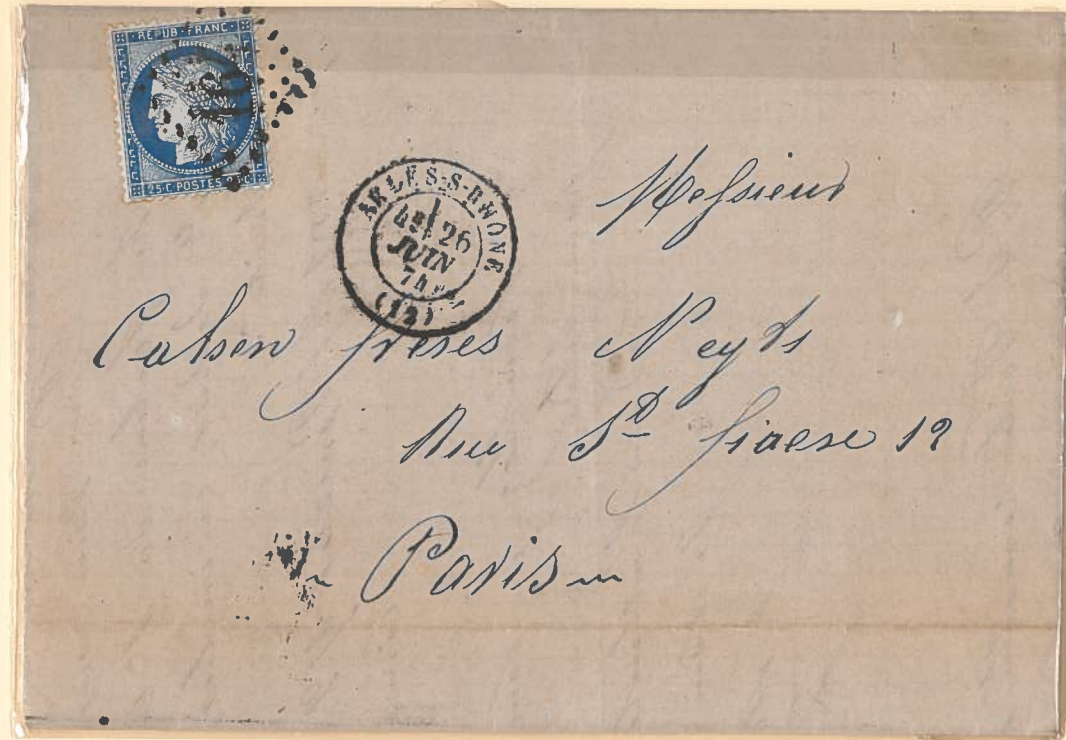 REPUB·FRANC·
25·C·POSTES·25·C
ARLES-S-RHONE
26
JUIN
(12)
Messieurs
frères
Rue St Fiacre 12
Paris